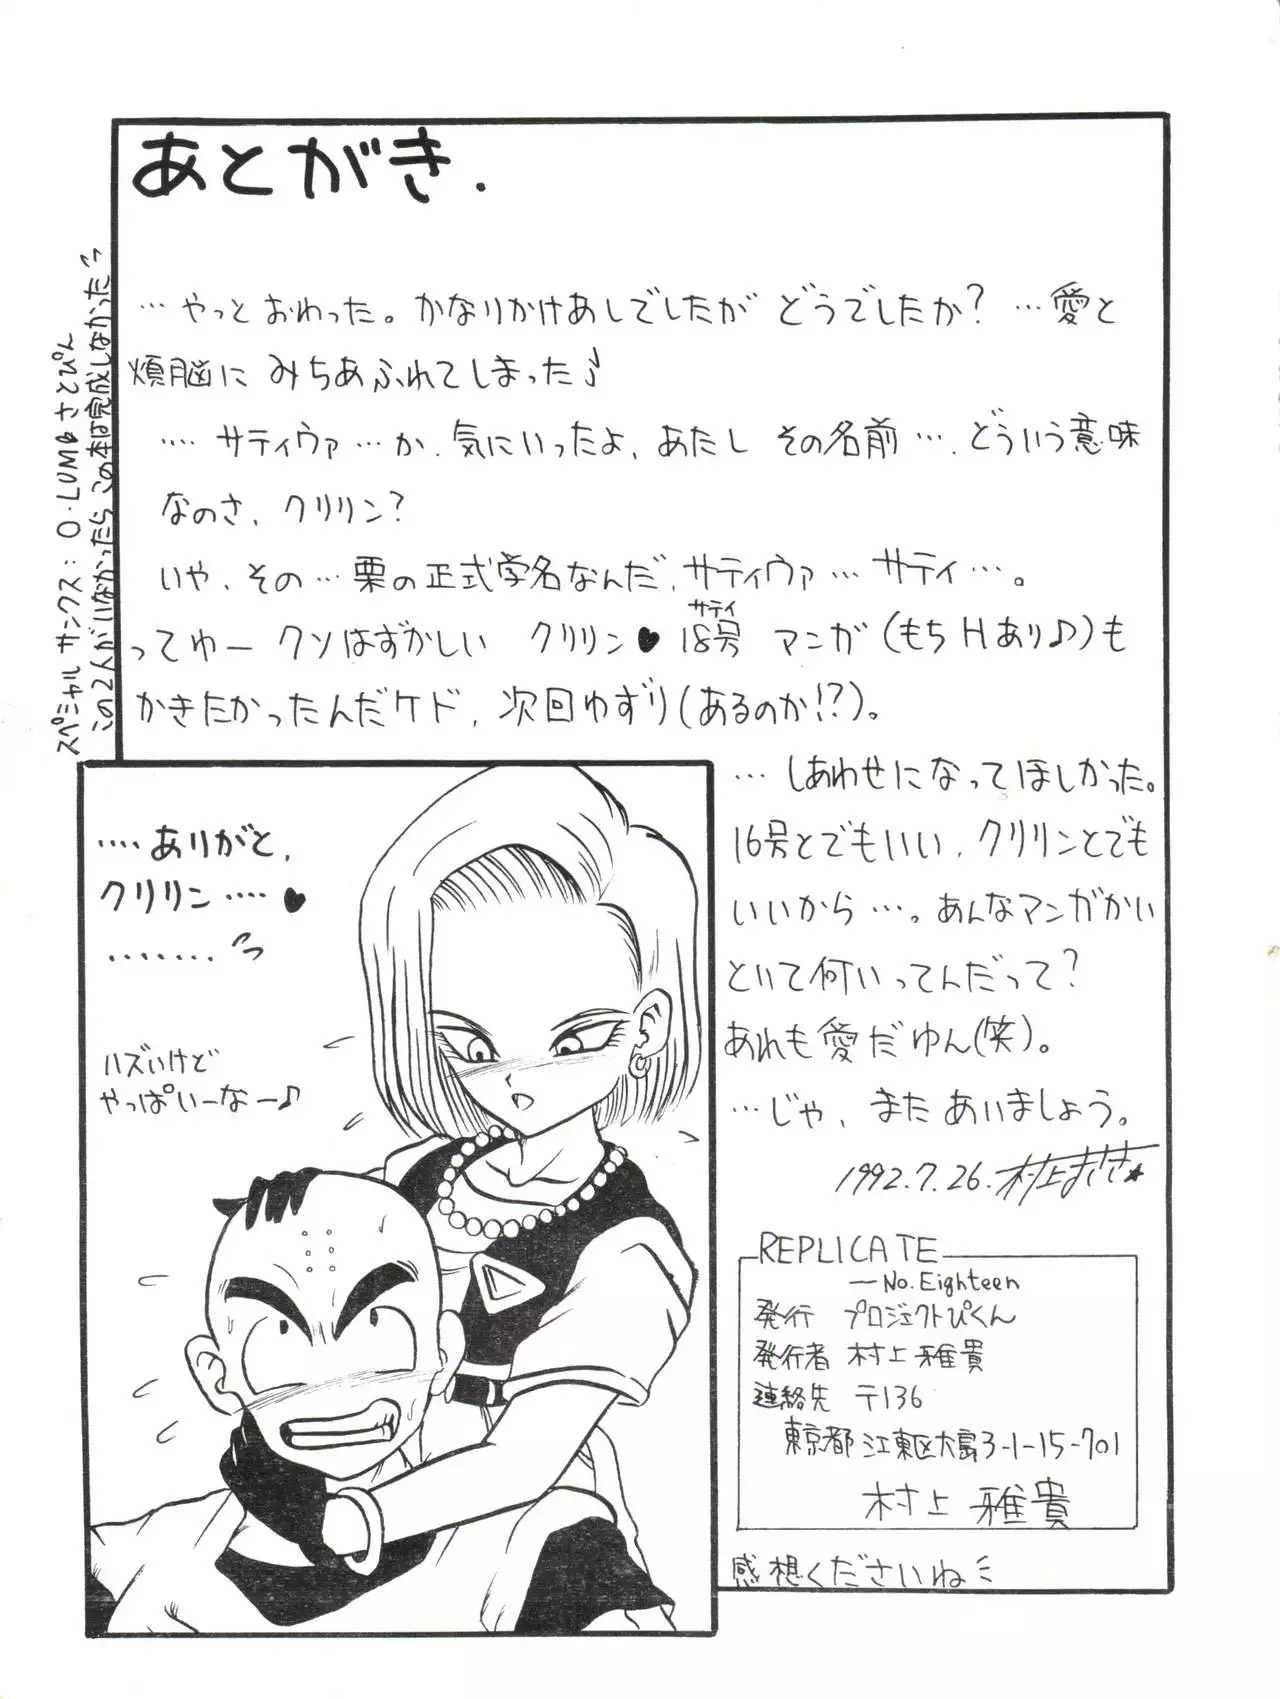 あとがき.
…やっとおわった。かなりかけあしでしたがどうでしたか?…愛と
煩脳にみちあふれてしまった♪
…. サティヴァ…か、気にいったよ、あたし その名前….どういう意味
なのさ、クリリン?
いや、その…栗の正式学名なんだ、サティヴァ…サティ…。
ってゆー クソはずかしい クリリン♥18号 マンガ(もちHあり♪)も
サティ
かきたかったんだケド、次回ゆずり(あるのか!?)。
…しあわせになってほしかった。
16号とでもいい、クリリンとでも
いいから…。あんなマンガかい
といて何いってんだって?
あれも愛だゆん(笑)。
…じゃ、またあいましょう。
1992.7.26.村上まさき★
スペシャルサンクス:O・LUM&さとぴん
この2人がいなかったらこの本は完成しなかった
….ありがと、
クリリン….♥
.......
ハズいけど
やっぱいーなー♪
REPLICATE
—No.Eighteen
発行 プロジェクトぴくん
発行者 村上 雅貴
連絡先 〒136
東京都江東区大島3-1-15-701
村上 雅貴
感想くださいね